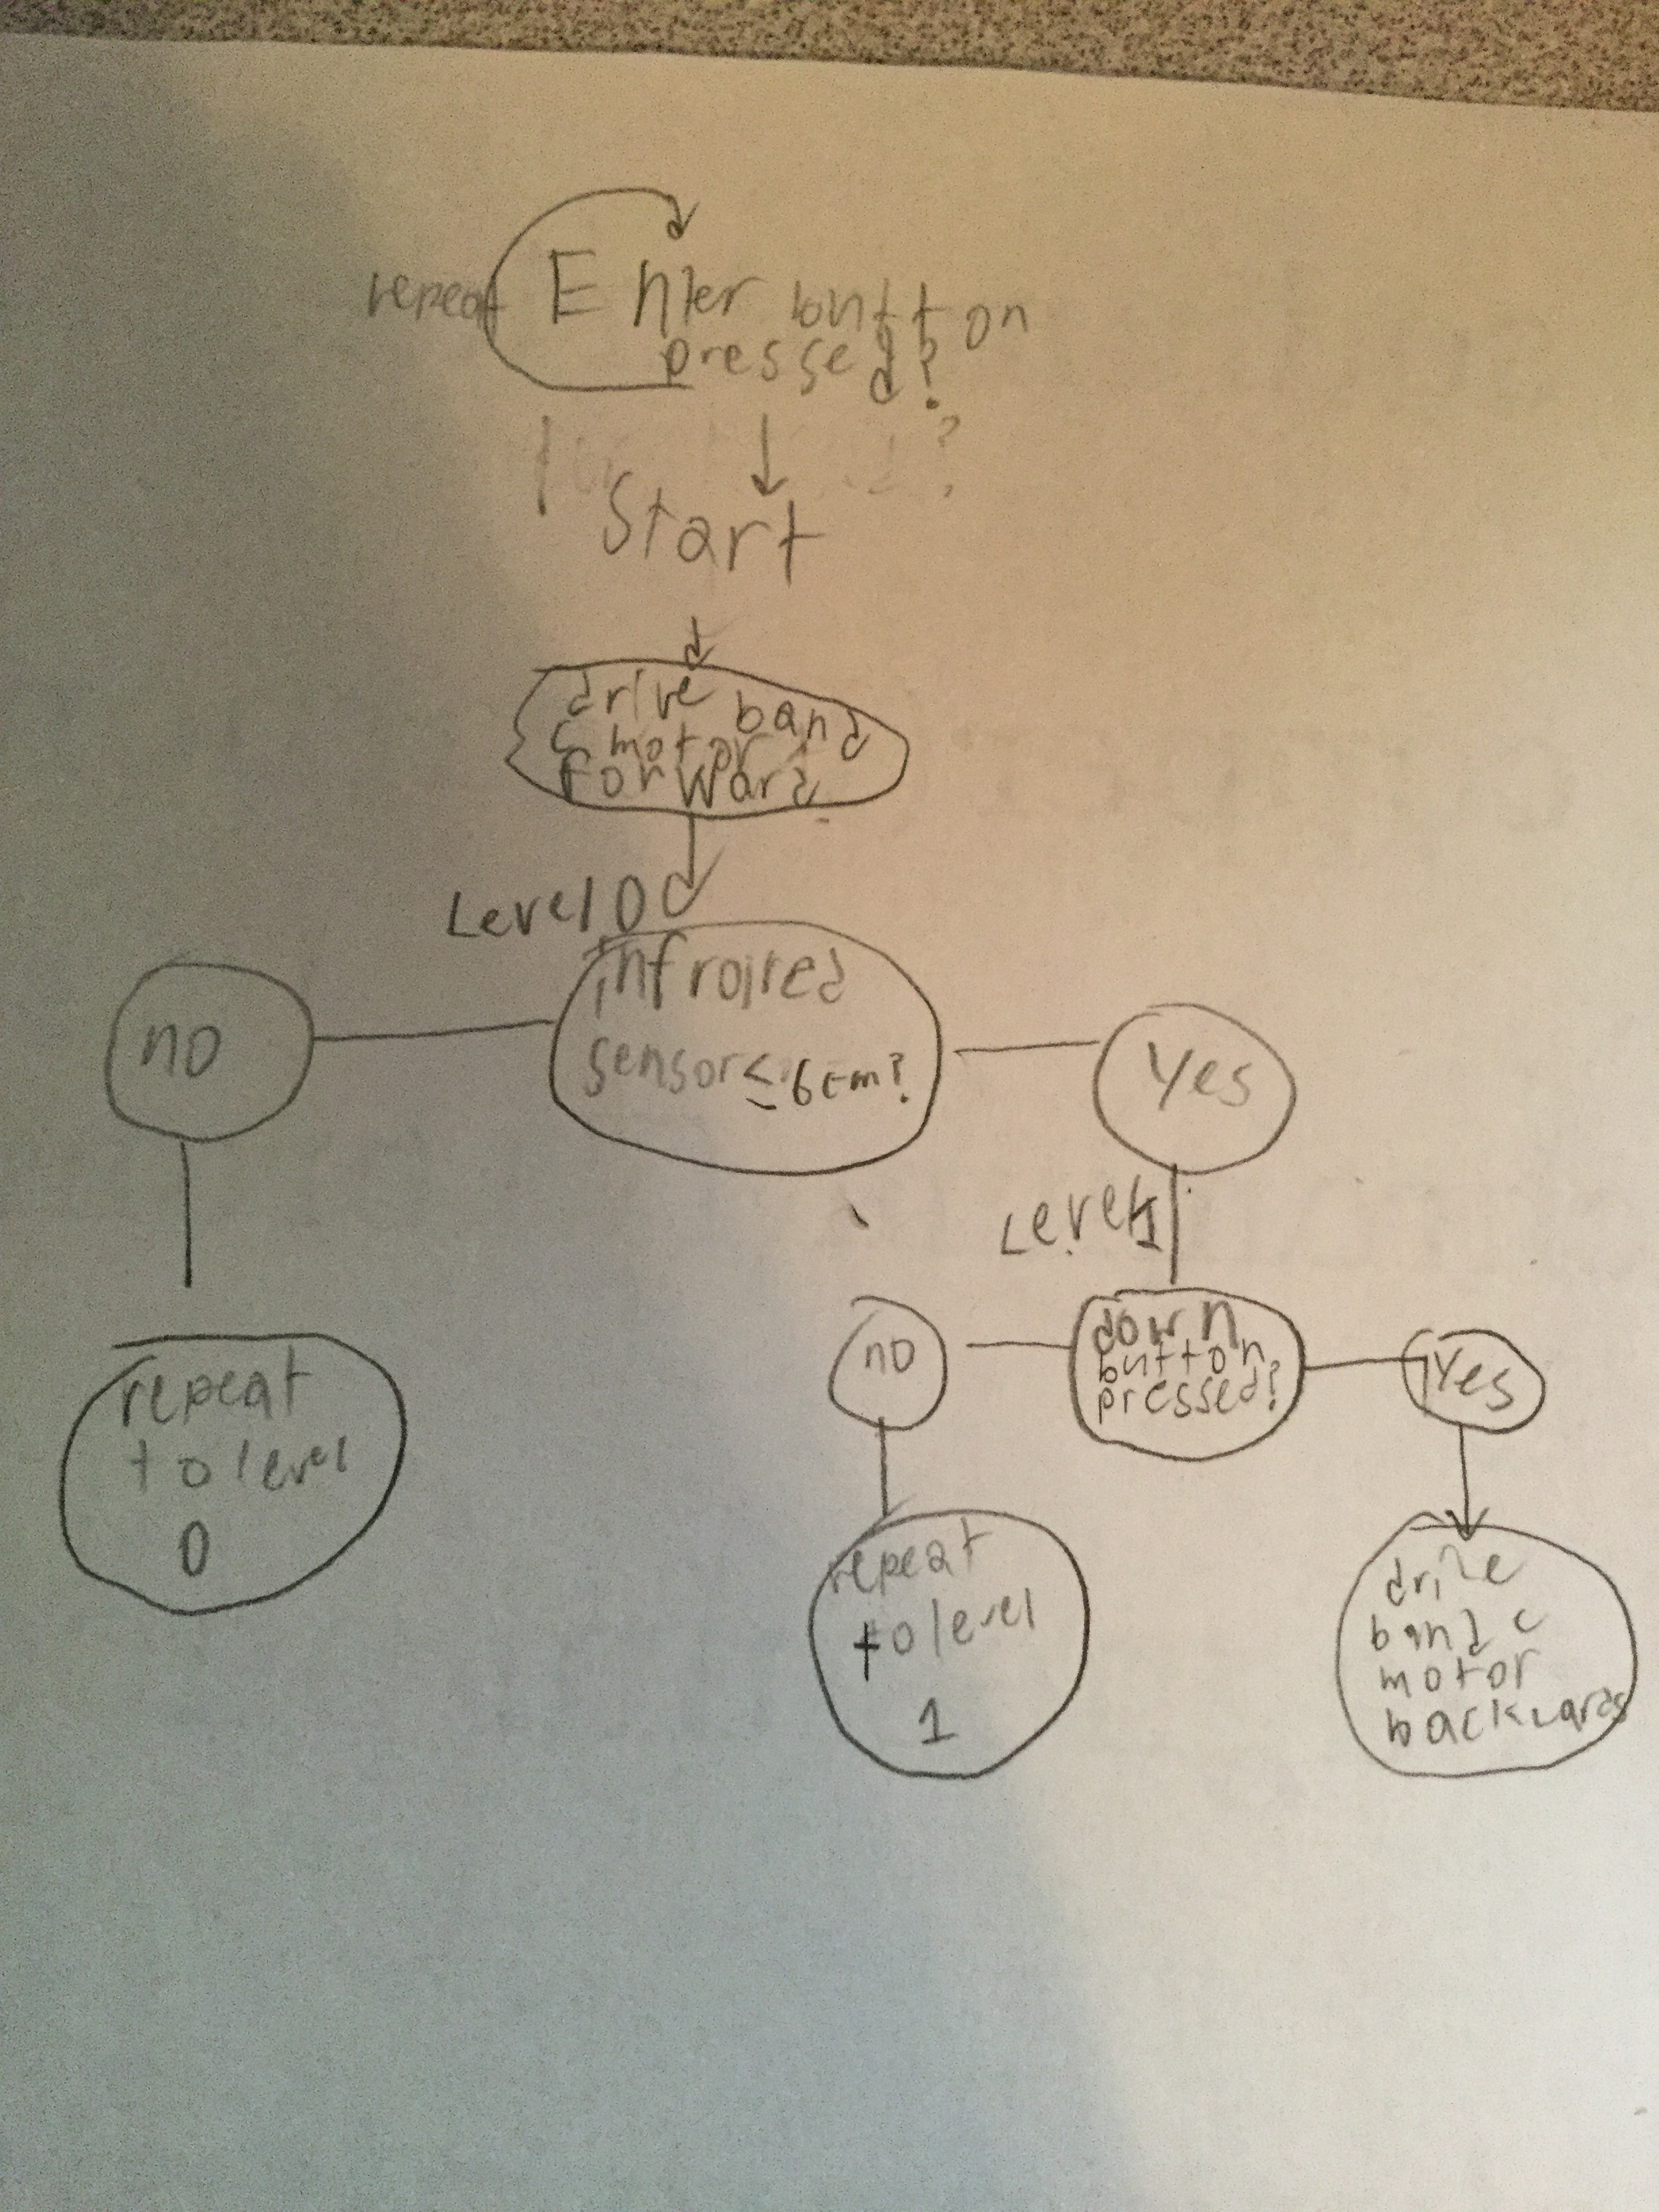 repeat
Enter button
pressed?
?
Start
drive band
c motor
forward
Level 0
infroired
sensor ≤ 6cm?
no
yes
Level 1
repeat
to level
0
no
down
button
pressed?
yes
repeat
to level
1
drive
band c
motor
backwards